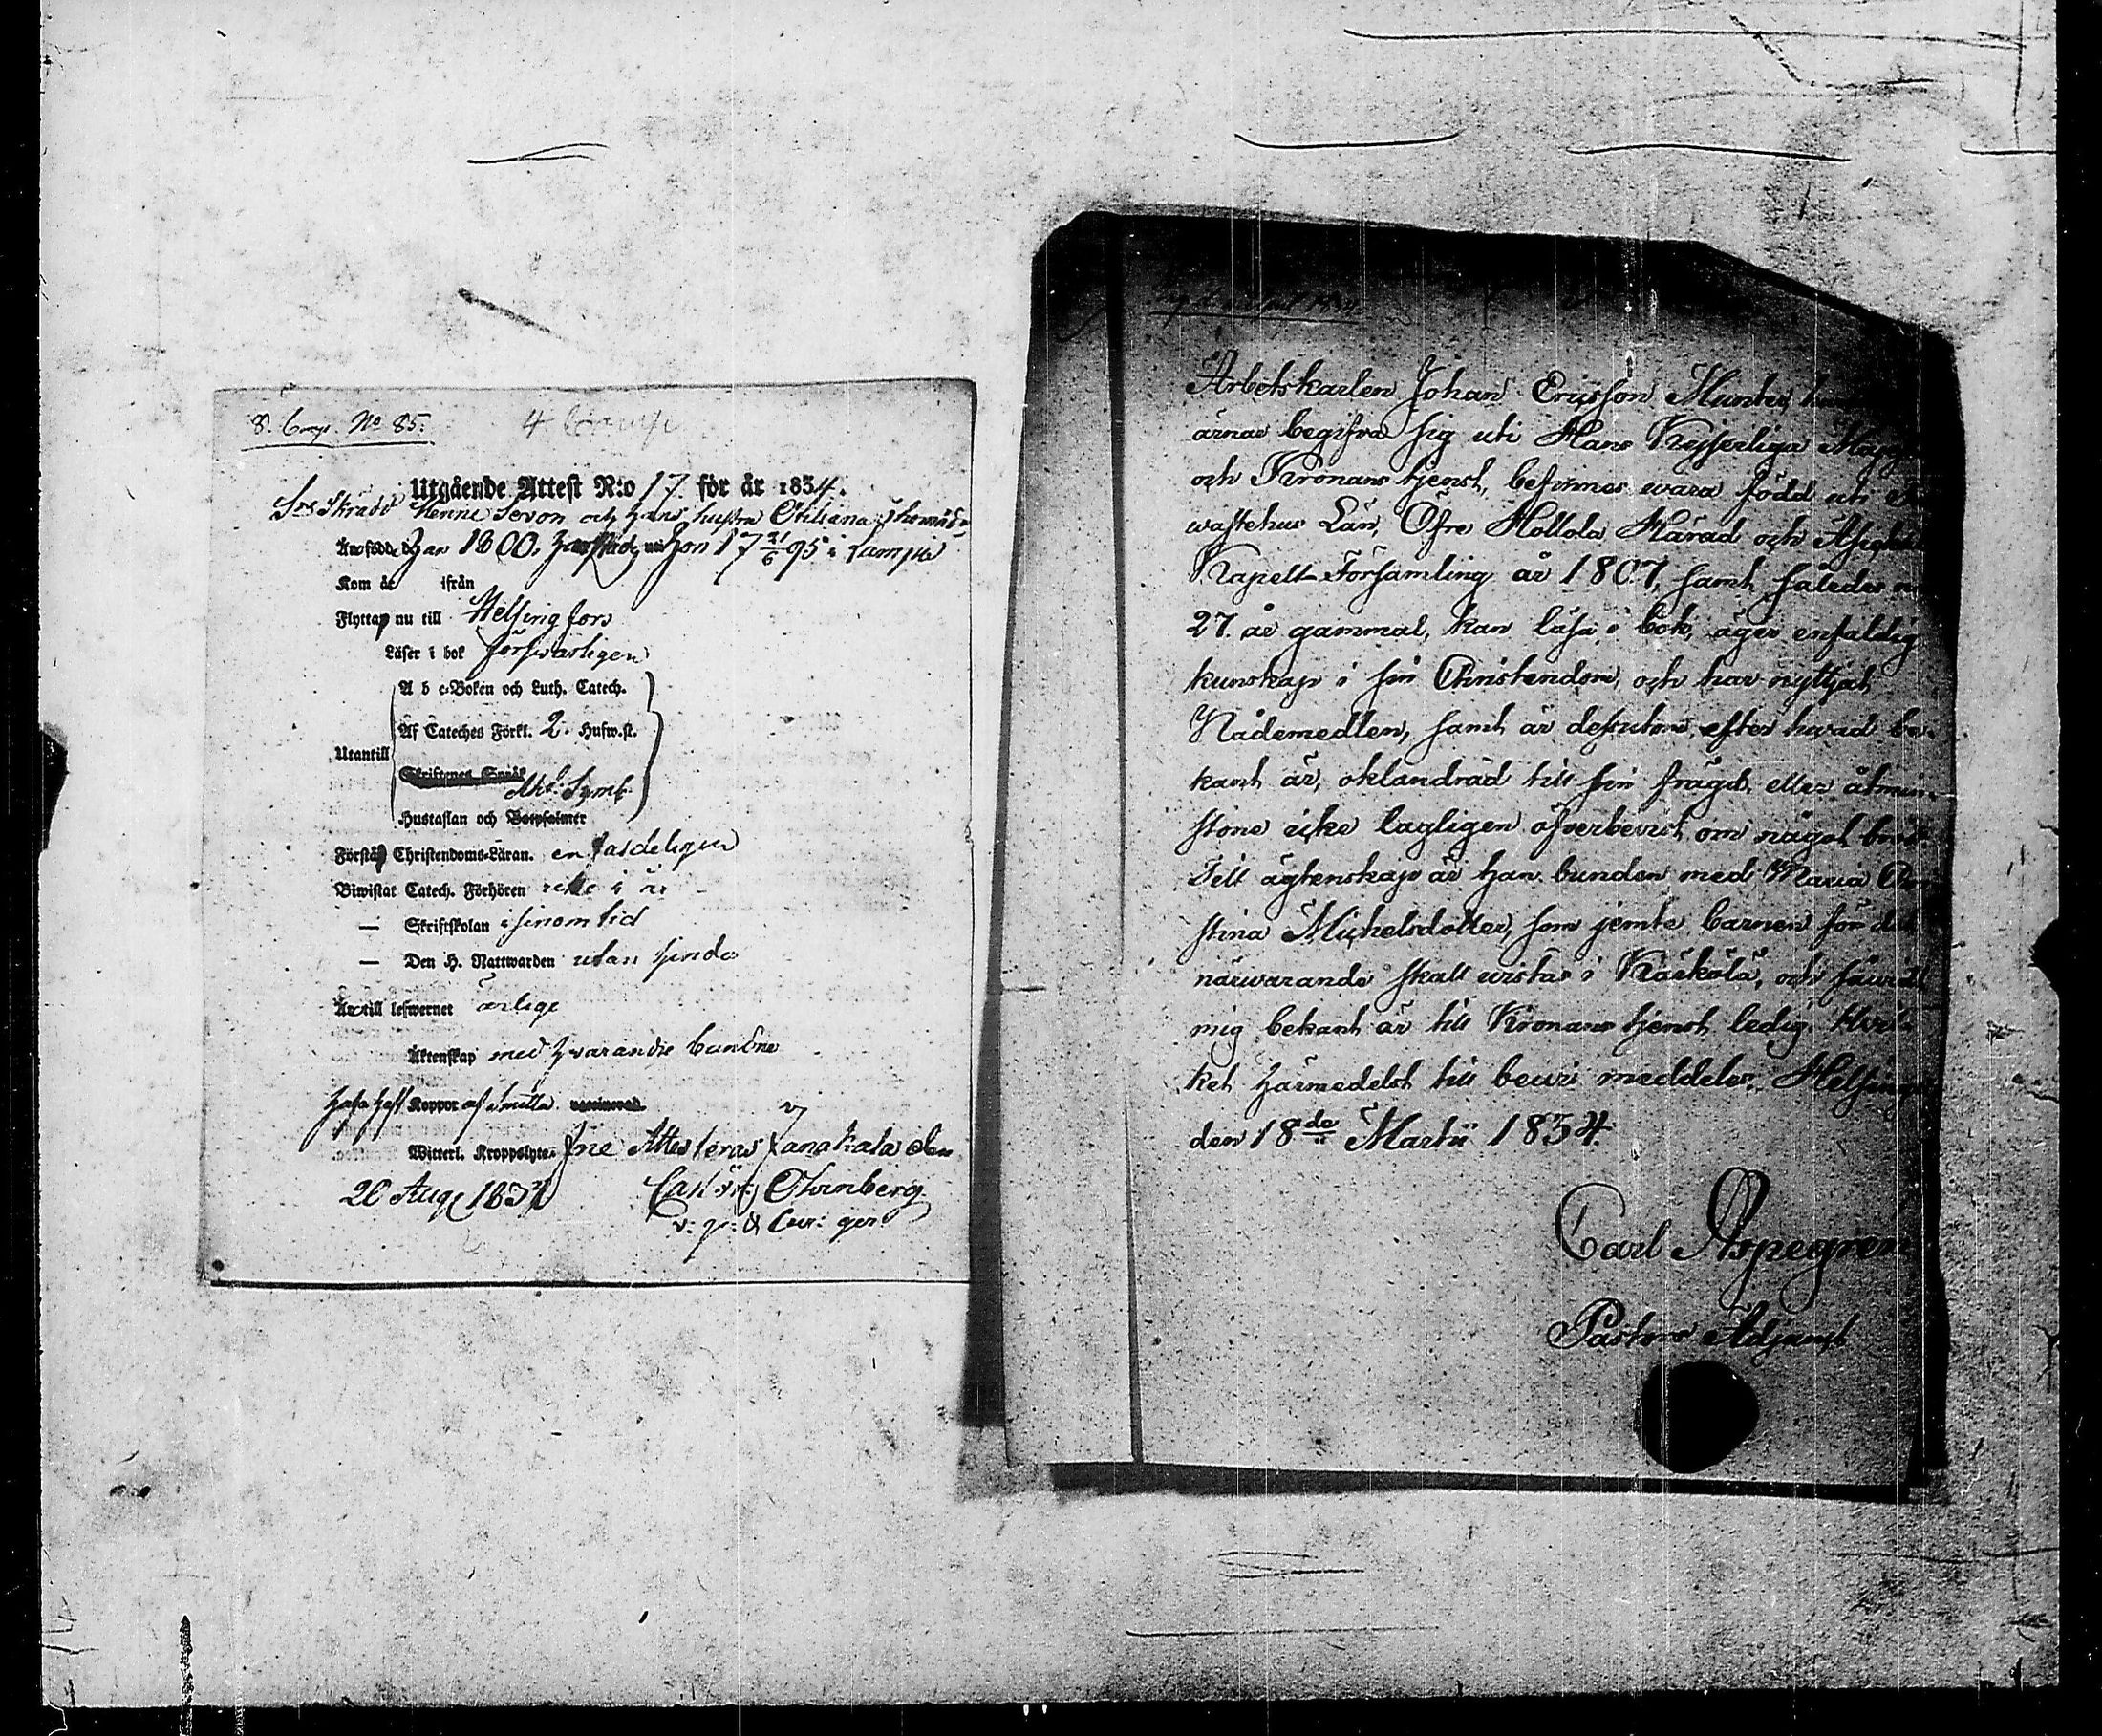 8. Comp. No 85.
Utgående Attest N:o 17. för år 1834.
Henric Sevon och hans hustru
Är födde han 1800. hon 17 21/6 95 i
Kom år ifrån
Flyttap nu till Helsingfors
Läser i bok försvarligen
A b c-Boken och Luth. Catech.
Af Cateches Förkl. 2. Hufw.st.
Utantill
Skriftenes Språk
Ath. Symb.
Hustaflan och Botpsalmer
Förstå Christendoms-Läran. enfaldeligen
Biwistat Catech. Förhören i år
— Skriftskolan i sinom tid
— Den H. Nattwarden utan hinder
Är till lefwernet ärlige
Äktenskap med hvarandre bundne
hafa haft Koppor af Smitta vaccinerad.
Witterl. Kroppslyte. Attesteras Janakala den
20 Aug 1834
v. p. &
Arbetskarlen Johan Ericsson Munter,
ärnar begifva sig uti Hans Kejserliga
och Kronans tjenst, befinnes vara född uti
wastehus Län, Öfre Hollola Härad och
Kapell-Församling år 1807, samt således
27. år gammal, kan läsa i bok, äger enfaldig
kunskap i sin Christendom, och har nyttjat
Nådemedlen, samt är dessutom efter hvad be-
kant är, oklandrad till sin frägd, eller åtmin-
stone icke lagligen öfverbevist om något brott
Till ägtenskap är han bunden med Maria Chri-
stina Michelsdotter, som jemte barnen för det
närvarande skall vistas i Kärkölä, och såvidt
mig bekant är till Kronans tjenst ledig. Hvil-
ket härmedelst till bevis meddeles. Helsing
den 18de Martii 1834.
Carl Aspegren
Pastors Adjunct